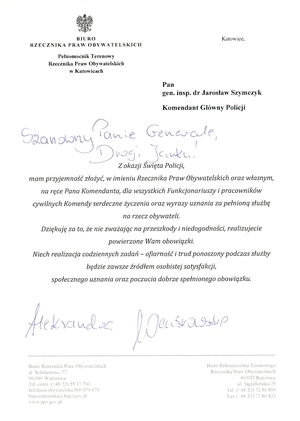 BIURO
RZECZNIKA PRAW OBYWATELSKICH
Pełnomocnik Terenowy
Rzecznika Praw Obywatelskich
w Katowicach
Katowice,
Pan
gen. insp. dr Jarosław Szymczyk
Komendant Główny Policji
Szanowny Panie Generale,
Drogi Jarku!
Z okazji Święta Policji,
mam przyjemność złożyć, w imieniu Rzecznika Praw Obywatelskich oraz własnym,
na ręce Pana Komendanta, dla wszystkich Funkcjonariuszy i pracowników
cywilnych Komendy serdeczne życzenia oraz wyrazy uznania za pełnioną służbę
na rzecz obywateli.
Dziękuję za to, że nie zważając na przeszkody i niedogodności, realizujecie
powierzone Wam obowiązki.
Niech realizacja codziennych zadań – ofiarność i trud ponoszony podczas służby
będzie zawsze źródłem osobistej satysfakcji,
społecznego uznania oraz poczucia dobrze spełnionego obowiązku.
Aleksandra
Biuro Rzecznika Praw Obywatelskich
al. Solidarności 77
00-090 Warszawa
Biuro Pełnomocnika Terenowego
Rzecznika Praw Obywatelskich
40-032 Katowice
ul. Jagiellońska 25
www.rpo.gov.pl